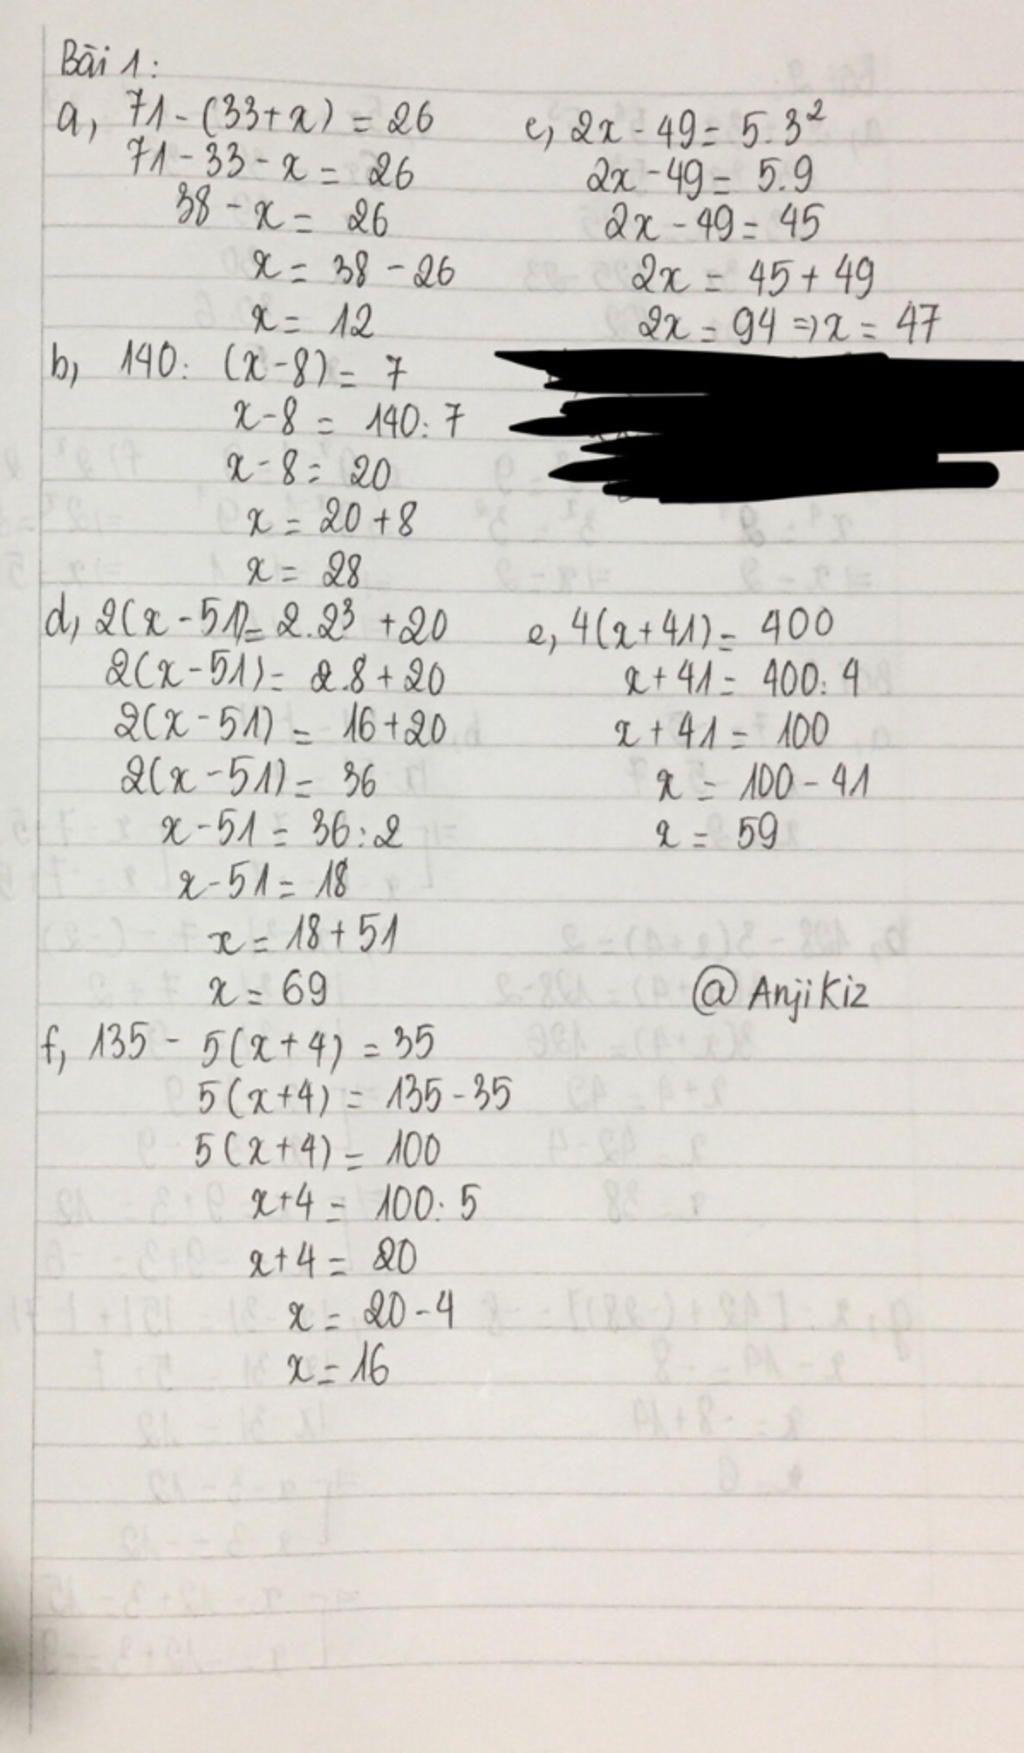 Bài 1:
a, 71 - (33+x) = 26
71 - 33 - x = 26
38 - x = 26
x = 38 - 26
x = 12
b, 140: (x-8) = 7
x-8 = 140:7
x-8 = 20
x = 20+8
x = 28
c, 2x - 49 = 5.3²
2x - 49 = 5.9
2x - 49 = 45
2x = 45 + 49
2x = 94 => x = 47
d, 2(x - 51) = 2.2³ + 20
2(x - 51) = 2.8 + 20
2(x - 51) = 16+20
2(x - 51) = 36
x - 51 = 36:2
x - 51 = 18
x = 18 + 51
x = 69
e, 4(x+41) = 400
x+41 = 400:4
x + 41 = 100
x = 100 - 41
x = 59
@AnjiKiz
f, 135 - 5(x+4) = 35
5(x+4) = 135 - 35
5(x+4) = 100
x+4 = 100:5
x+4 = 20
x = 20-4
x = 16